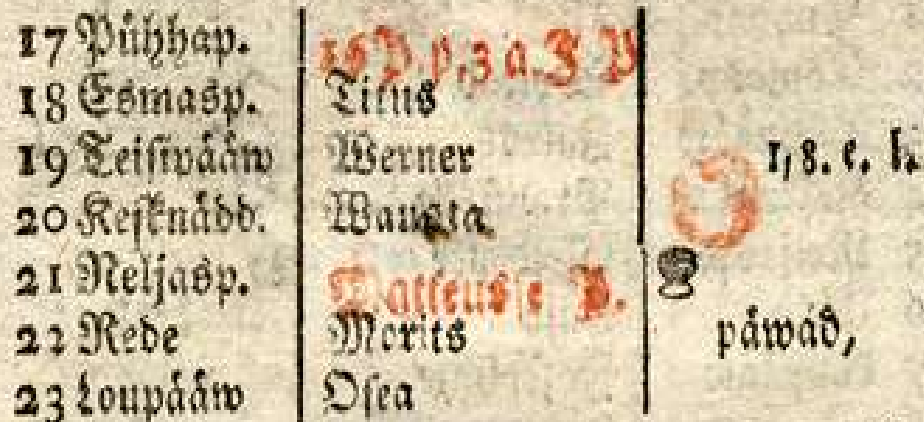 17 Pühhap. 16 P. p. 3 a. J P
18 Esmasp. Titus
19 Teisiwääw Werner 1, 8. e. l.
20 Kesknädd. Wausta
21 Neljasp. Matteusse P.
22 Rede Morits päwad,
23 Loupääw Osea